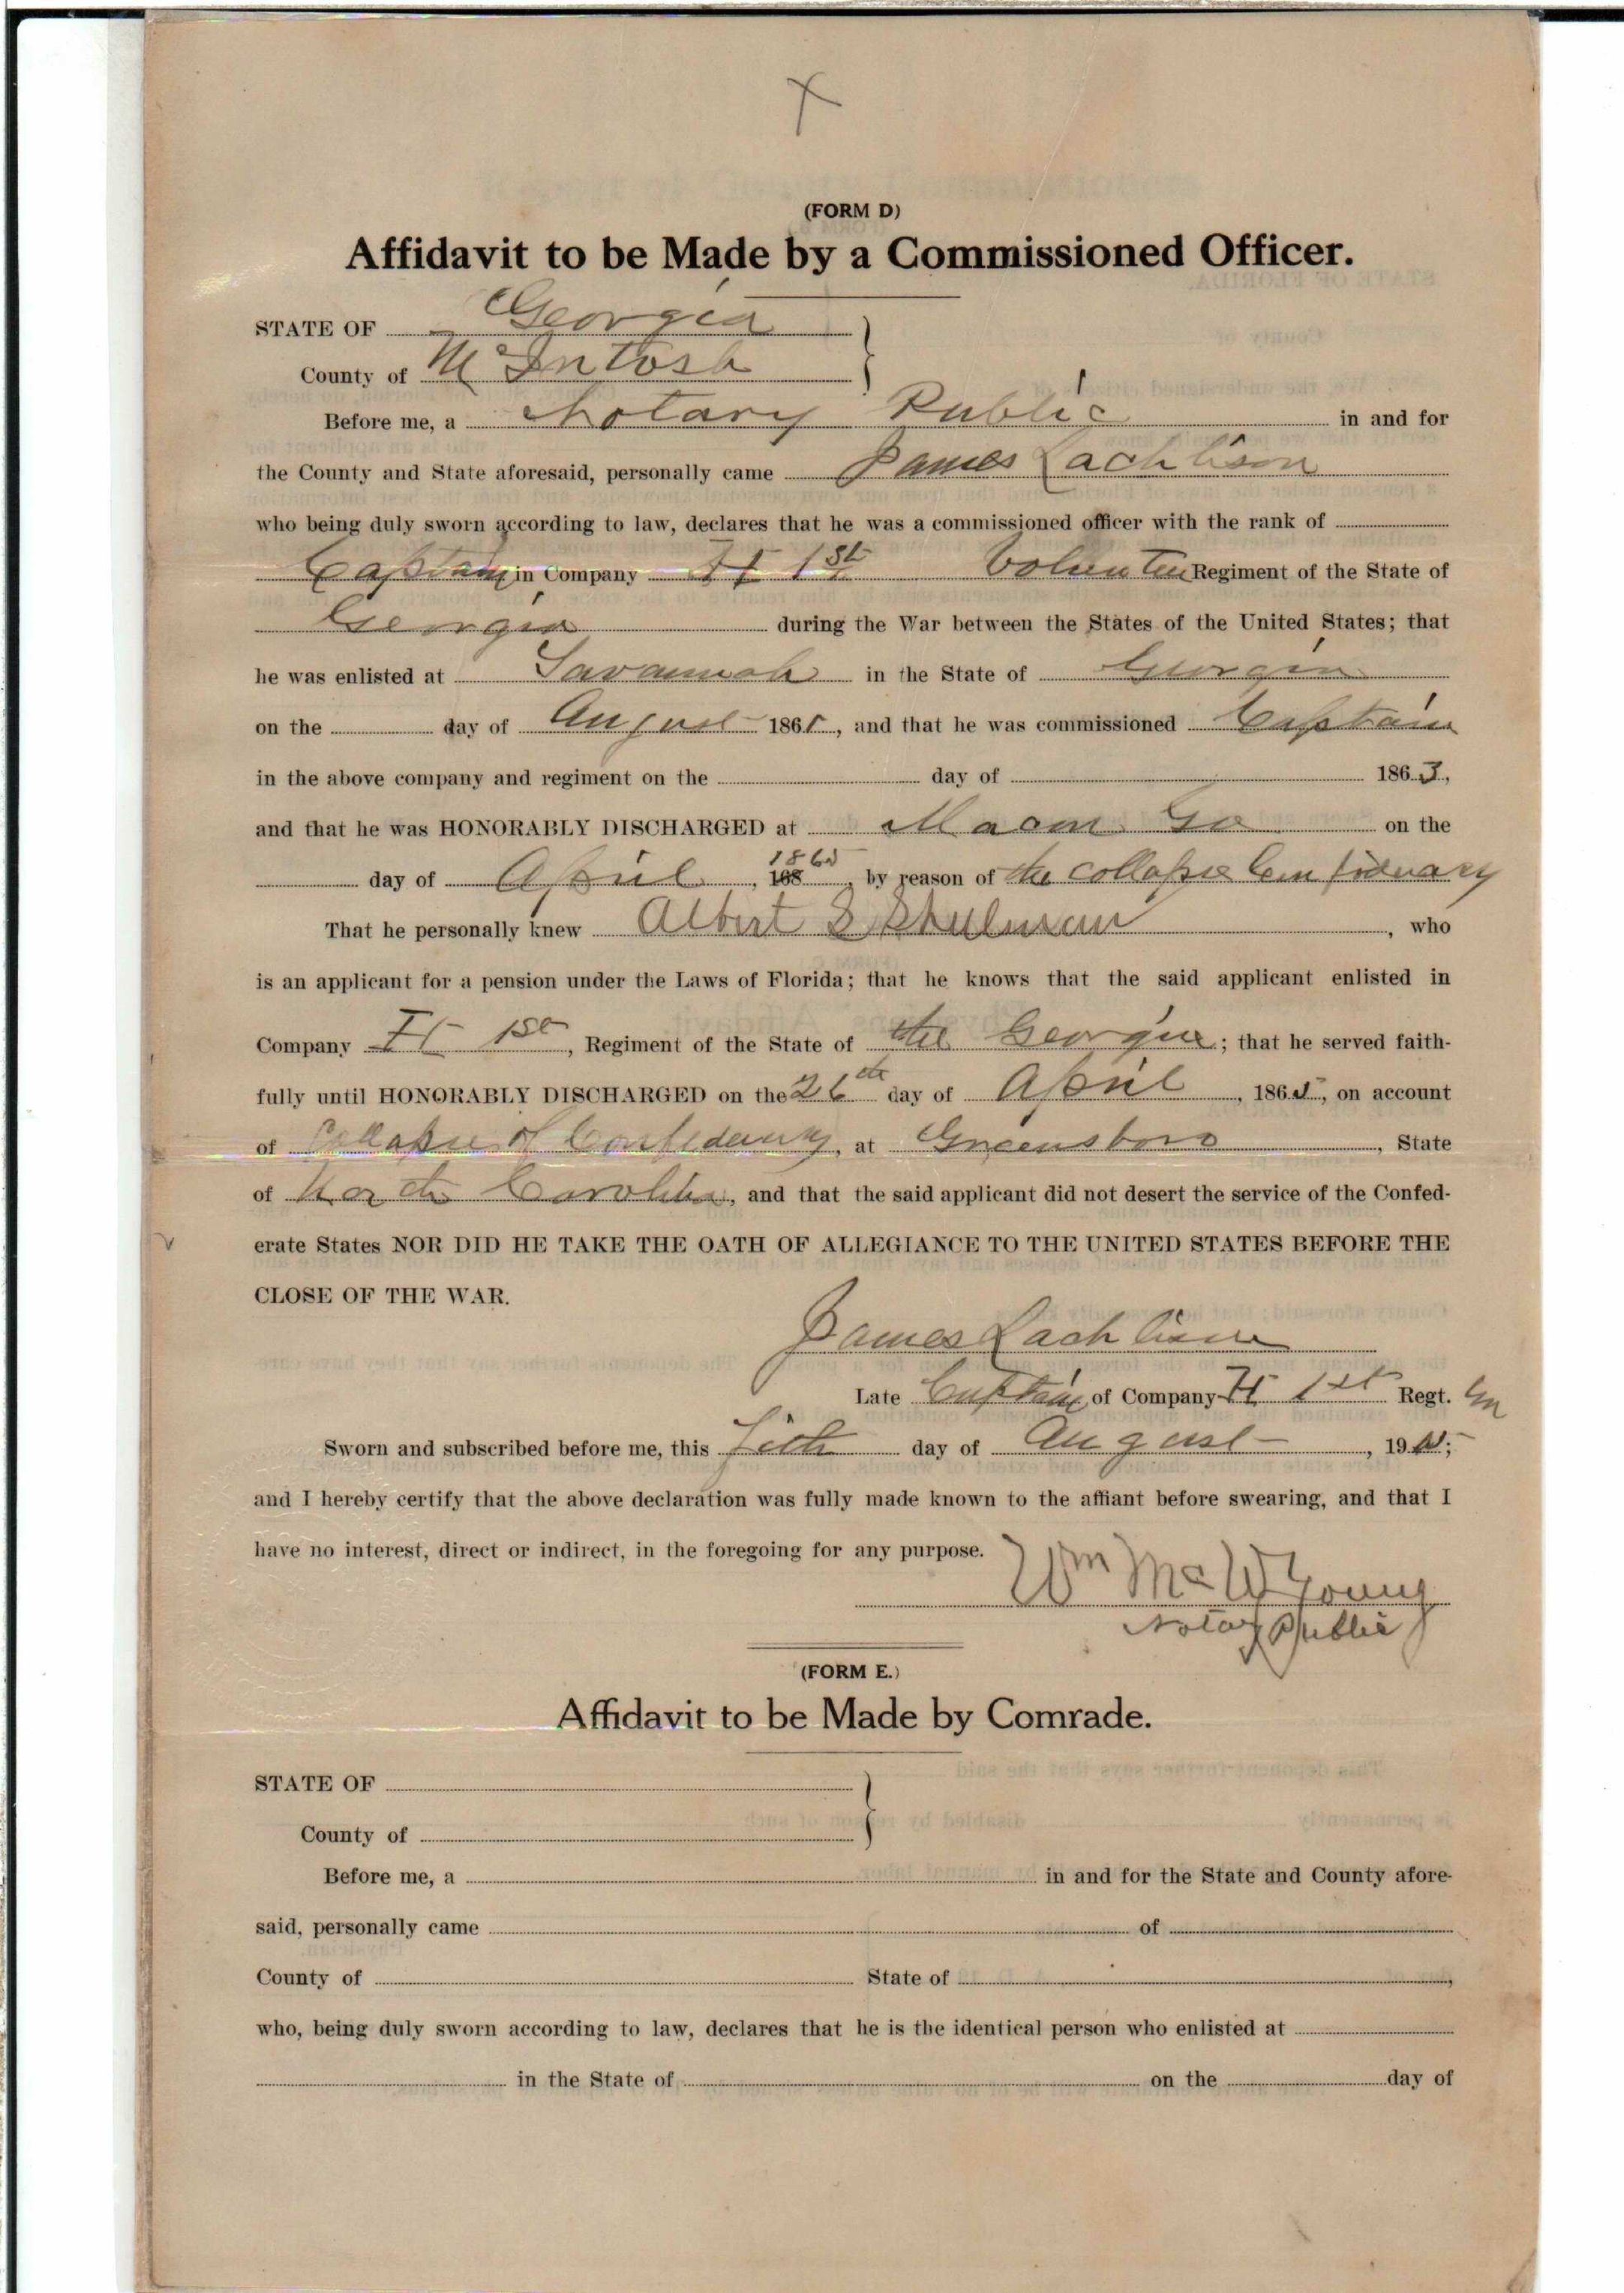 (FORM D)
Affidavit to be Made by a Commissioned Officer.
STATE OF Georgia
County of McIntosh
Before me, a Notary Public in and for
the County and State aforesaid, personally came James Lachlison
who being duly sworn according to law, declares that he was a commissioned officer with the rank of
Captain in Company H 1st Volunteer Regiment of the State of
Georgia during the War between the States of the United States; that
he was enlisted at Savannah in the State of Georgia
on the day of August 1861, and that he was commissioned Captain
in the above company and regiment on the day of 1863,
and that he was HONORABLY DISCHARGED at Macon Ga on the
1865
day of April, 168 , by reason of the collapse Confederacy
That he personally knew Albert S Shulman, who
is an applicant for a pension under the Laws of Florida; that he knows that the said applicant enlisted in
Company H 1st, Regiment of the State of the Georgia; that he served faith-
fully until HONORABLY DISCHARGED on the 26th day of April, 1865, on account
of Collapse of Confederacy, at Greensboro, State
of North Carolina, and that the said applicant did not desert the service of the Confed-
erate States NOR DID HE TAKE THE OATH OF ALLEGIANCE TO THE UNITED STATES BEFORE THE
CLOSE OF THE WAR.
James Lachlison
Late Captain of Company H 1st Regt. Ga
Sworn and subscribed before me, this day of August, 19 ;
and I hereby certify that the above declaration was fully made known to the affiant before swearing, and that I
have no interest, direct or indirect, in the foregoing for any purpose.
Wm McW Young
Notary Public
(FORM E.)
Affidavit to be Made by Comrade.
STATE OF
County of
Before me, a in and for the State and County afore-
said, personally came of
County of State of ,
who, being duly sworn according to law, declares that he is the identical person who enlisted at
in the State of on the day of